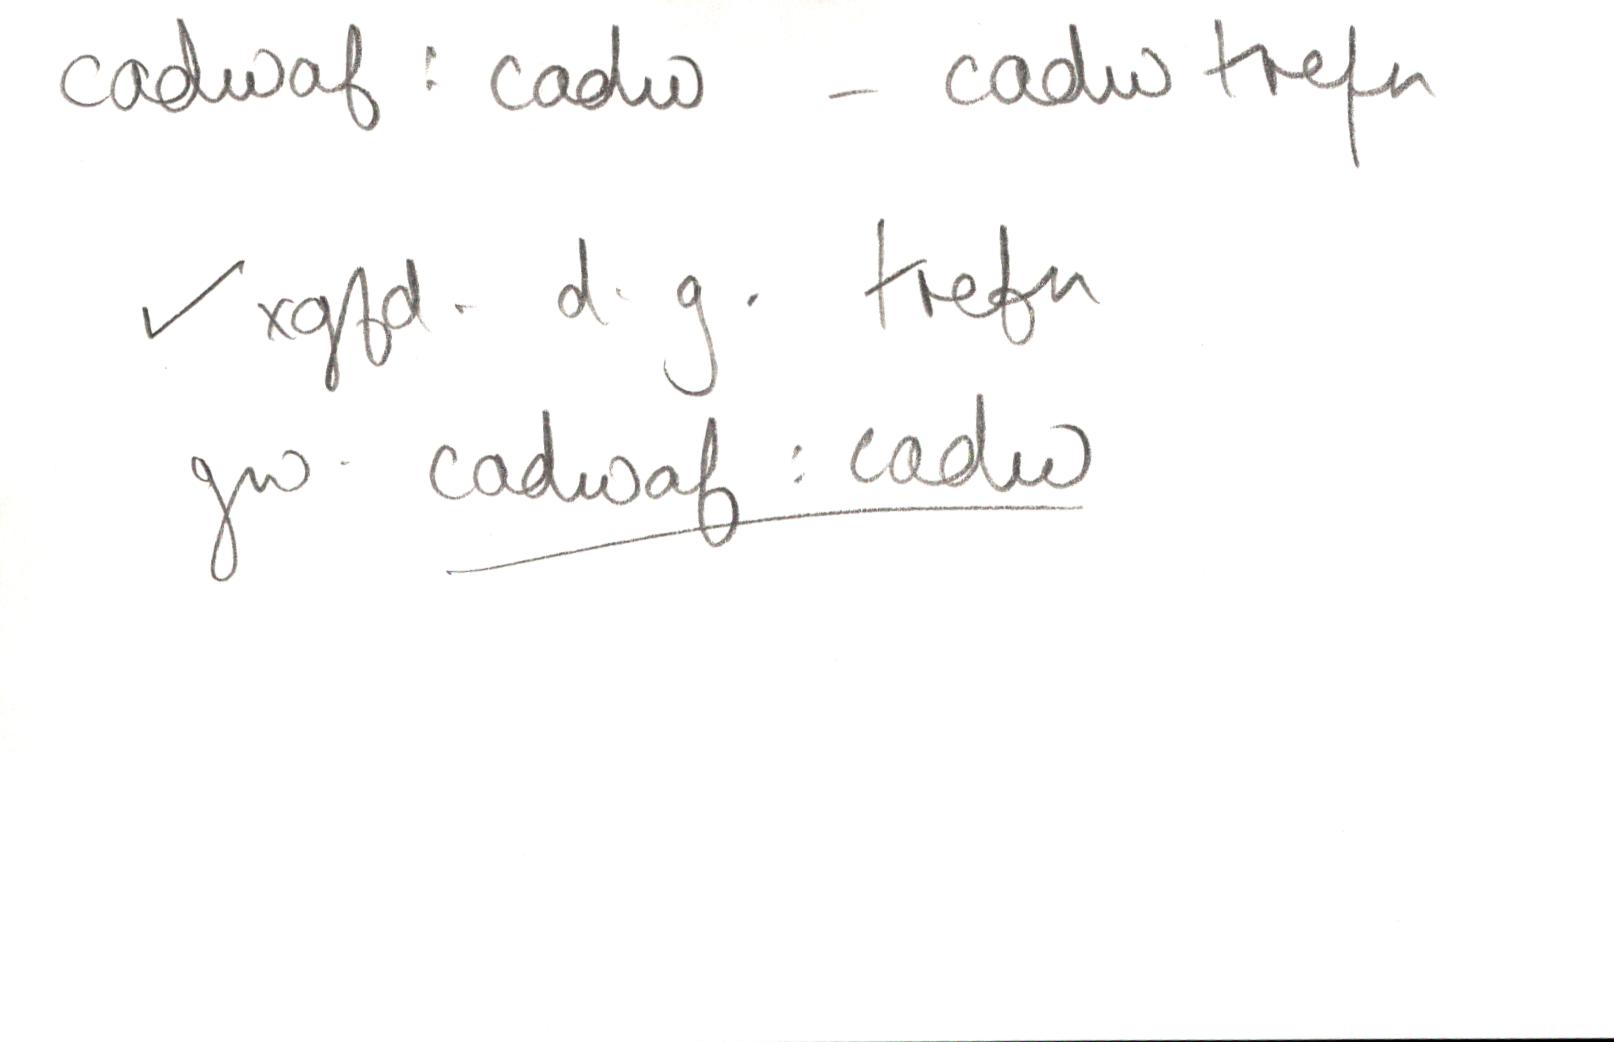 cadwaf : cadw - cadw trefn
✓ xgfd. d. g. trefn
gw. cadwaf : cadw